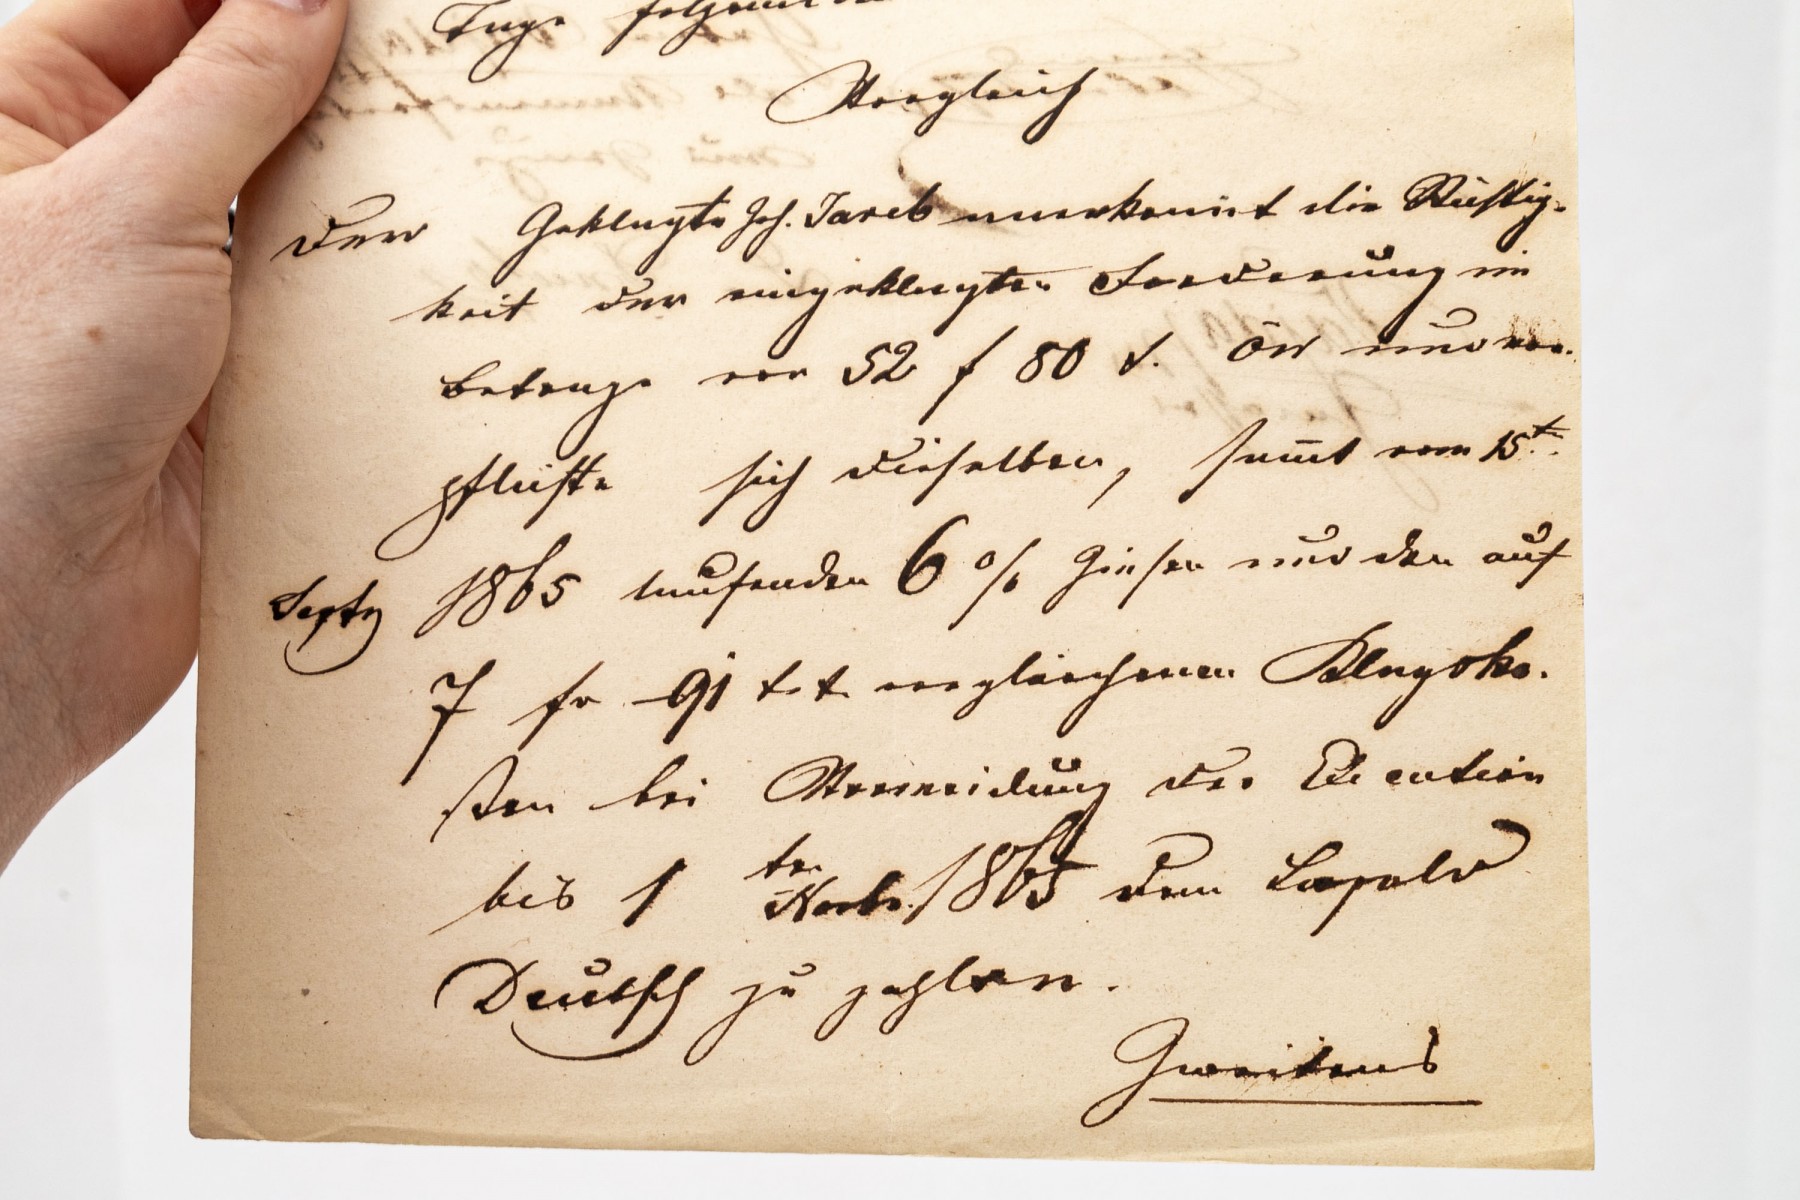 Tage folgender
Vergleich
Der Geklagte Joh. Jareb anerkennt die Richtig-
keit der eingeklagten Forderung im
Betrage von 52 f 80 x. ÖW und ver-
pflichte sich dieselben, sammt vom 15t.
Septb 1865 laufenden 6 % Zinsen und den auf
7 fr 91 xr verglichenen Klagsko-
sten bei Vermeidung der Execution
bis 1ten Novb. 1865 dem Leopold
Deutsch zu zahlen.
Zweitens